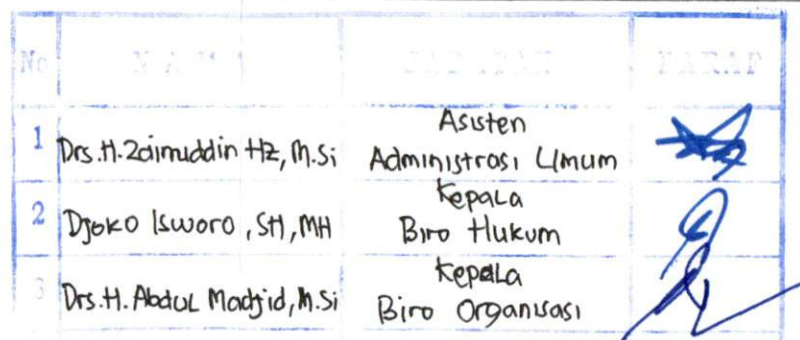 No NAMA JABATAN PARAF
1 Drs.H.Zainuddin Hz, M.Si Asisten Administrasi Umum
2 Djoko Isworo, SH, MH Kepala Biro Hukum
3 Drs.H. Abdul Madjid, M.Si Kepala Biro Organisasi